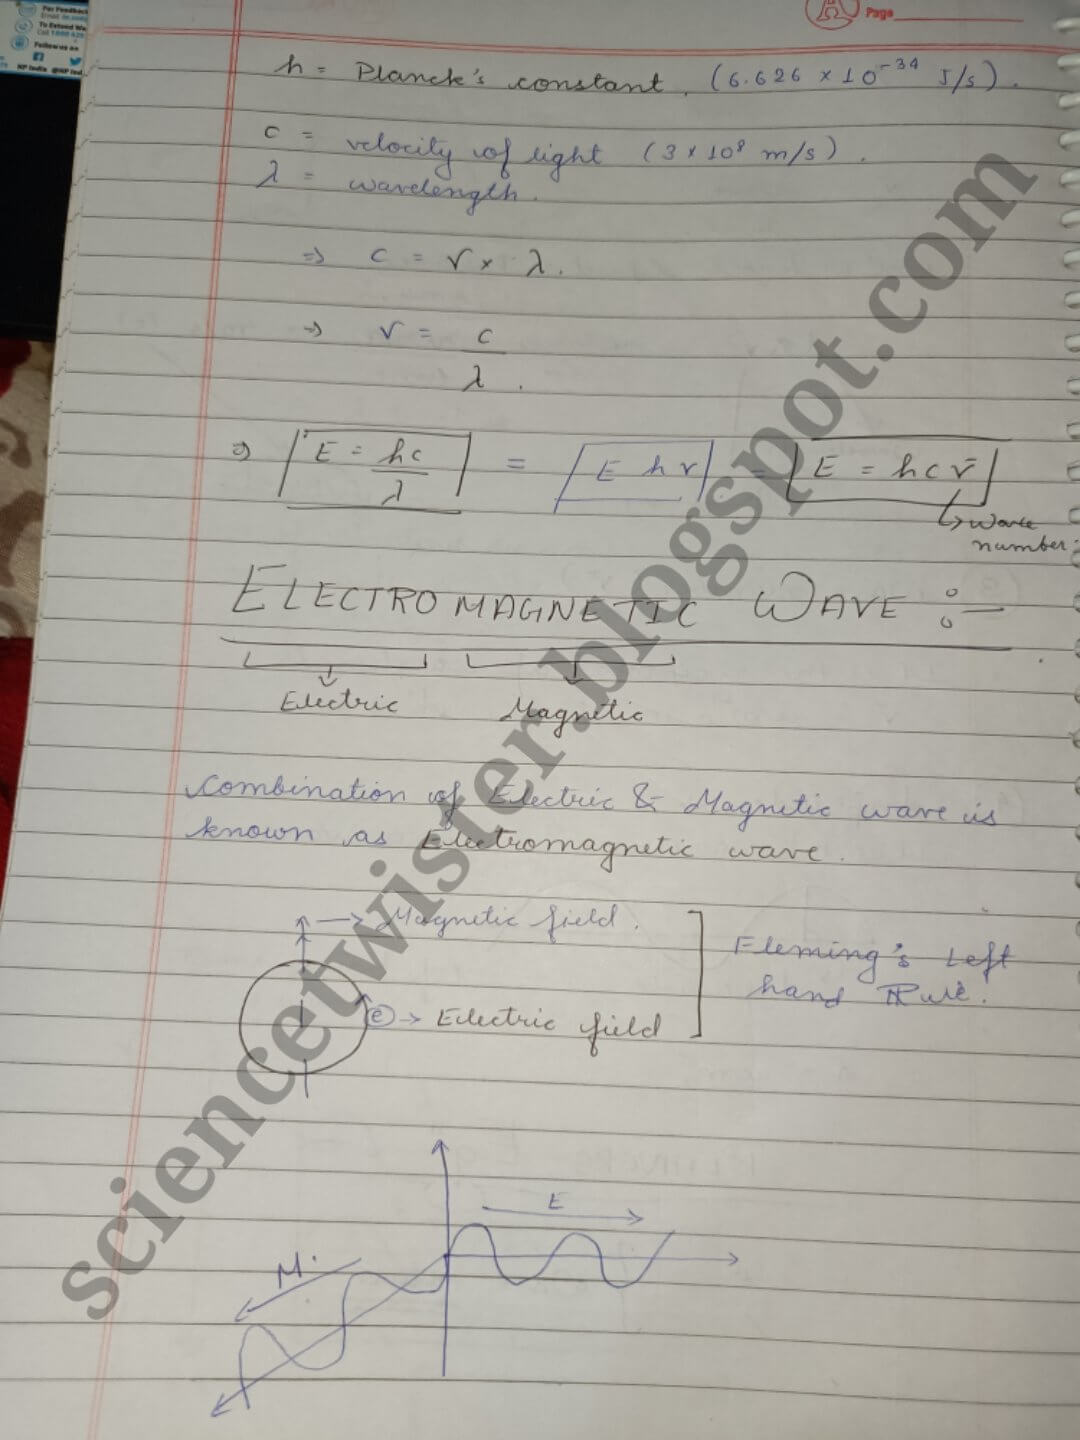 For Feedback
To Extend Wa
Follow us on
HP India @HP Ind
Page
h = Planck's constant. (6.626 × 10⁻³⁴ J/s).
c = velocity of light (3 × 10⁸ m/s).
λ = wavelength.
⇒ c = ν × λ.
→ ν = c/λ.
⇒ E = hc/λ = E hν = E = hcν̄
↳ wave number:
ELECTROMAGNETIC WAVE :-
Electric Magnetic
Combination of Electric & Magnetic wave is
known as Electromagnetic wave.
→ Magnetic field.
e → Electric field
Fleming's Left
hand Rule.
E
M.
sciencetwister.blogspot.com